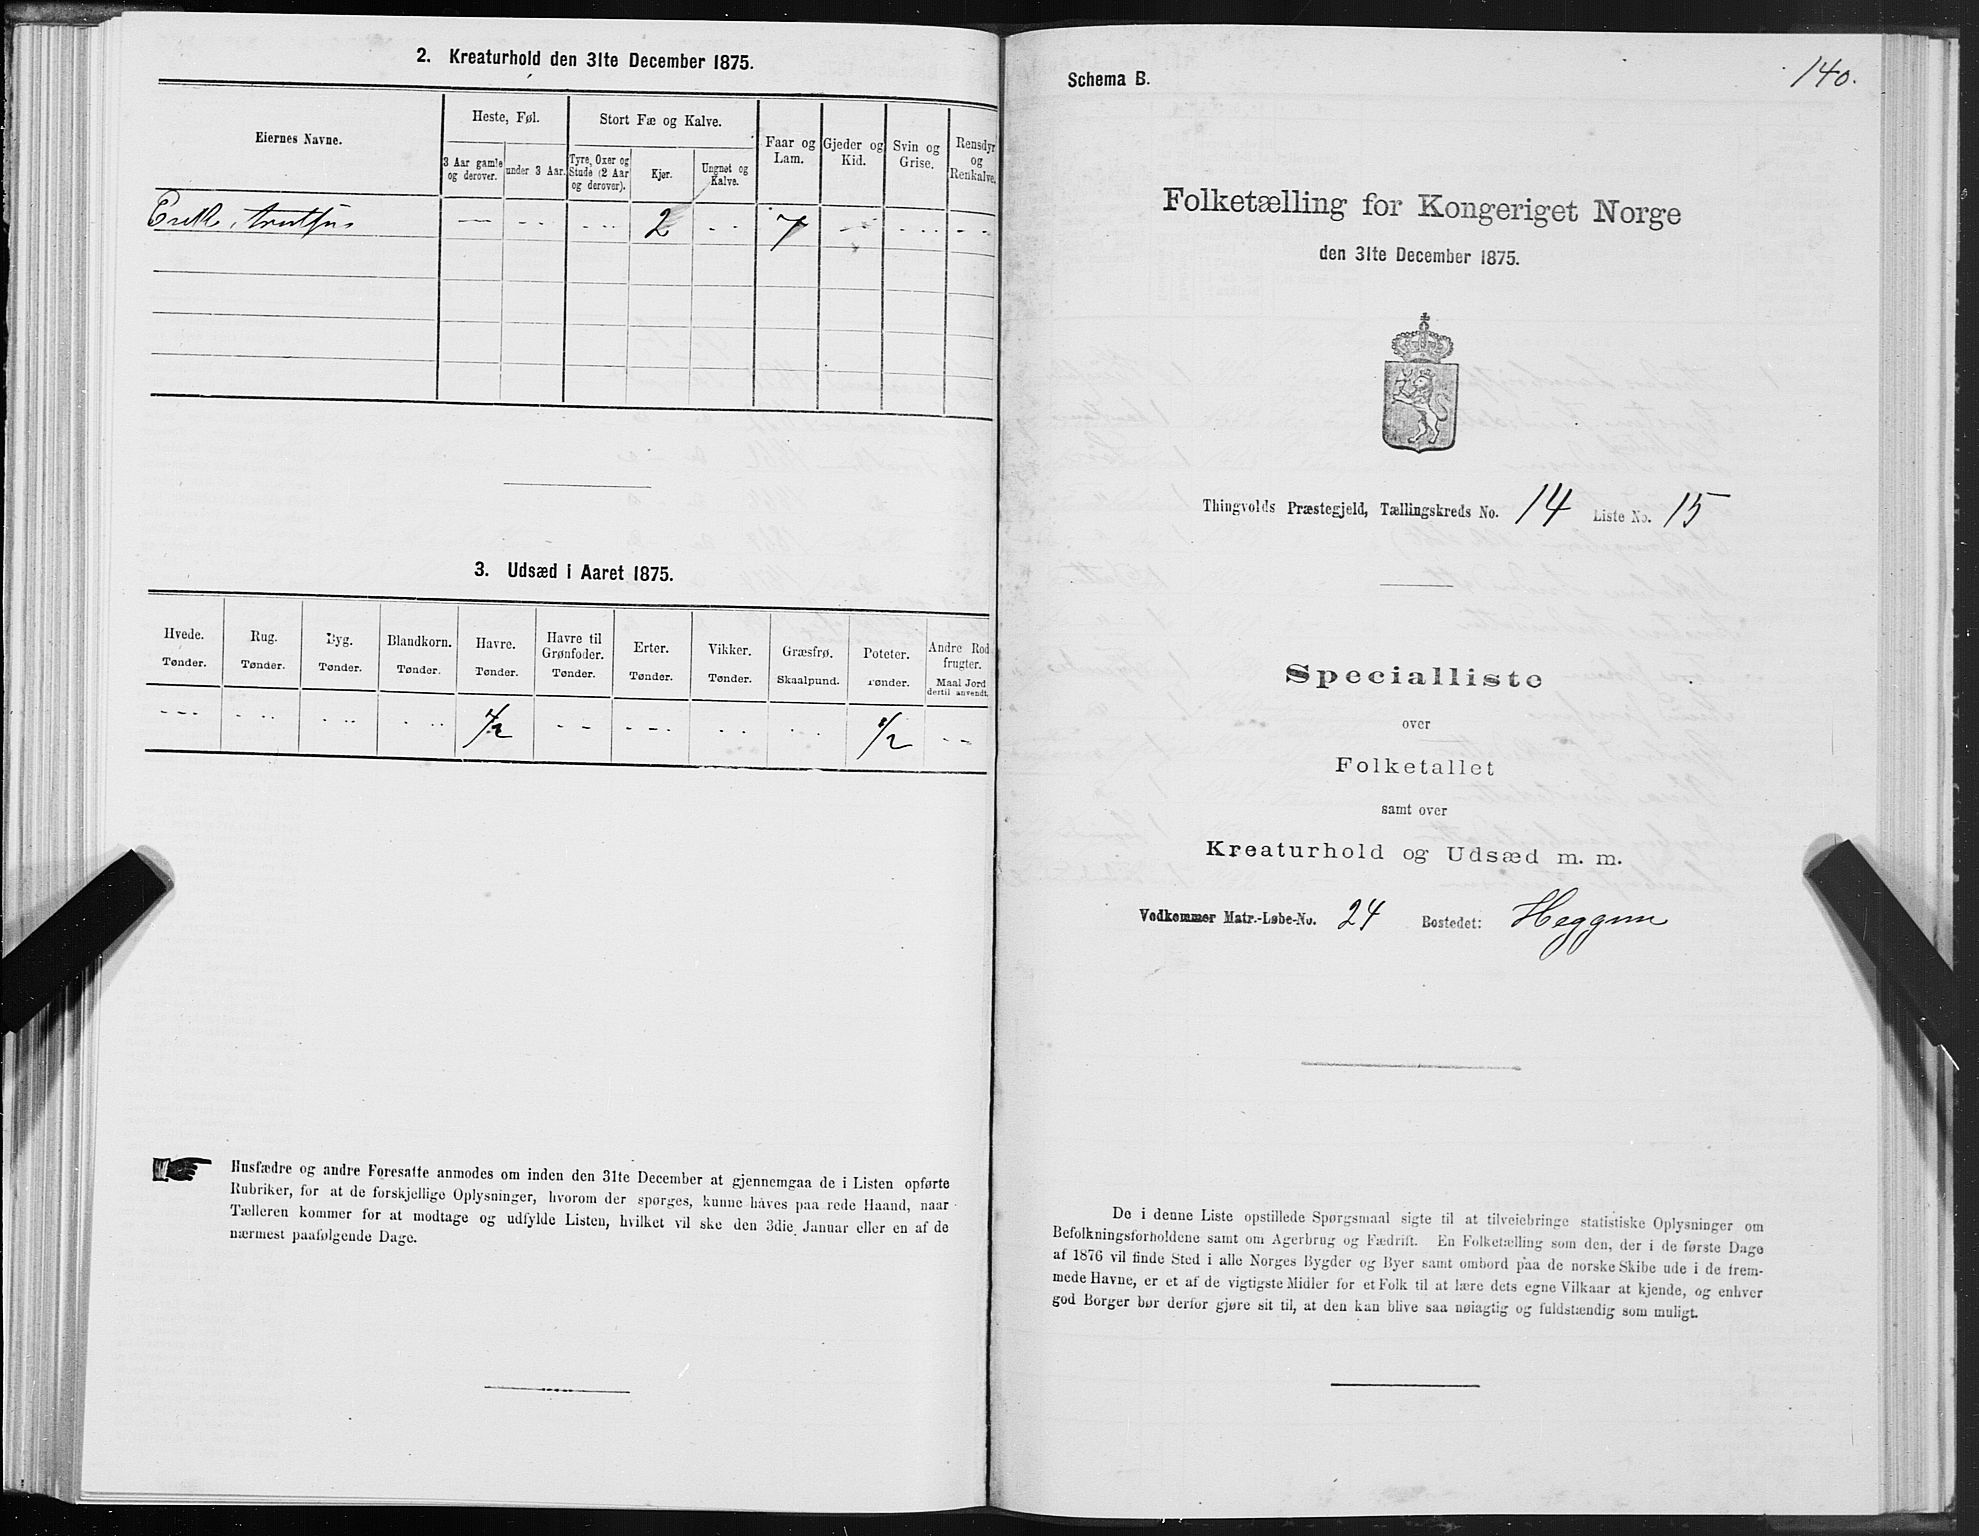 2. Kreaturhold den 31te December 1875.
Eiernes Navne.
Heste, Føl.
Stort Fæ og Kalve.
Faar og Lam.
Gjeder og Kid.
Svin og Grise.
Rensdyr og Renkalve.
3 Aar gamle og derover.
under 3 Aar.
Tyre, Oxer og Stude (2 Aar og derover).
Kjør.
Ungnøt og Kalve.
2 7
3. Udsæd i Aaret 1875.
Hvede. Rug. Byg. Blandkorn. Havre. Havre til Grønfoder. Erter. Vikker. Græsfrø. Poteter. Andre Rodfrugter.
Tønder. Tønder. Tønder. Tønder. Tønder. Tønder. Tønder. Tønder. Skaalpund. Tønder. Maal Jord dertil anvendt.
1/2
Husfædre og andre Foresatte anmodes om inden den 31te December at gjennemgaa de i Listen opførte
Rubriker, for at de forskjellige Oplysninger, hvorom der spørges, kunne haves paa rede Haand, naar
Tælleren kommer for at modtage og udfylde Listen, hvilket vil ske den 3die Januar eller en af de
nærmest paafølgende Dage.
Schema B.
140.
Folketælling for Kongeriget Norge
den 31te December 1875.
Thingvolds Præstegjeld, Tællingskreds No. 14 Liste No. 15
Specialliste
over
Folketallet
samt over
Kreaturhold og Udsæd m. m.
Vedkommer Matr.-Løbe-No. 24 Bostedet: Heggem
De i denne Liste opstillede Spørgsmaal sigte til at tilveiebringe statistiske Oplysninger om
Befolkningsforholdene samt om Agerbrug og Fædrift. En Folketælling som den, der i de første Dage
af 1876 vil finde Sted i alle Norges Bygder og Byer samt ombord paa de norske Skibe ude i de frem-
mede Havne, er et af de vigtigste Midler for et Folk til at lære dets egne Vilkaar at kjende, og enhver
god Borger bør derfor gjøre sit til, at den kan blive saa nøiagtig og fuldstændig som muligt.